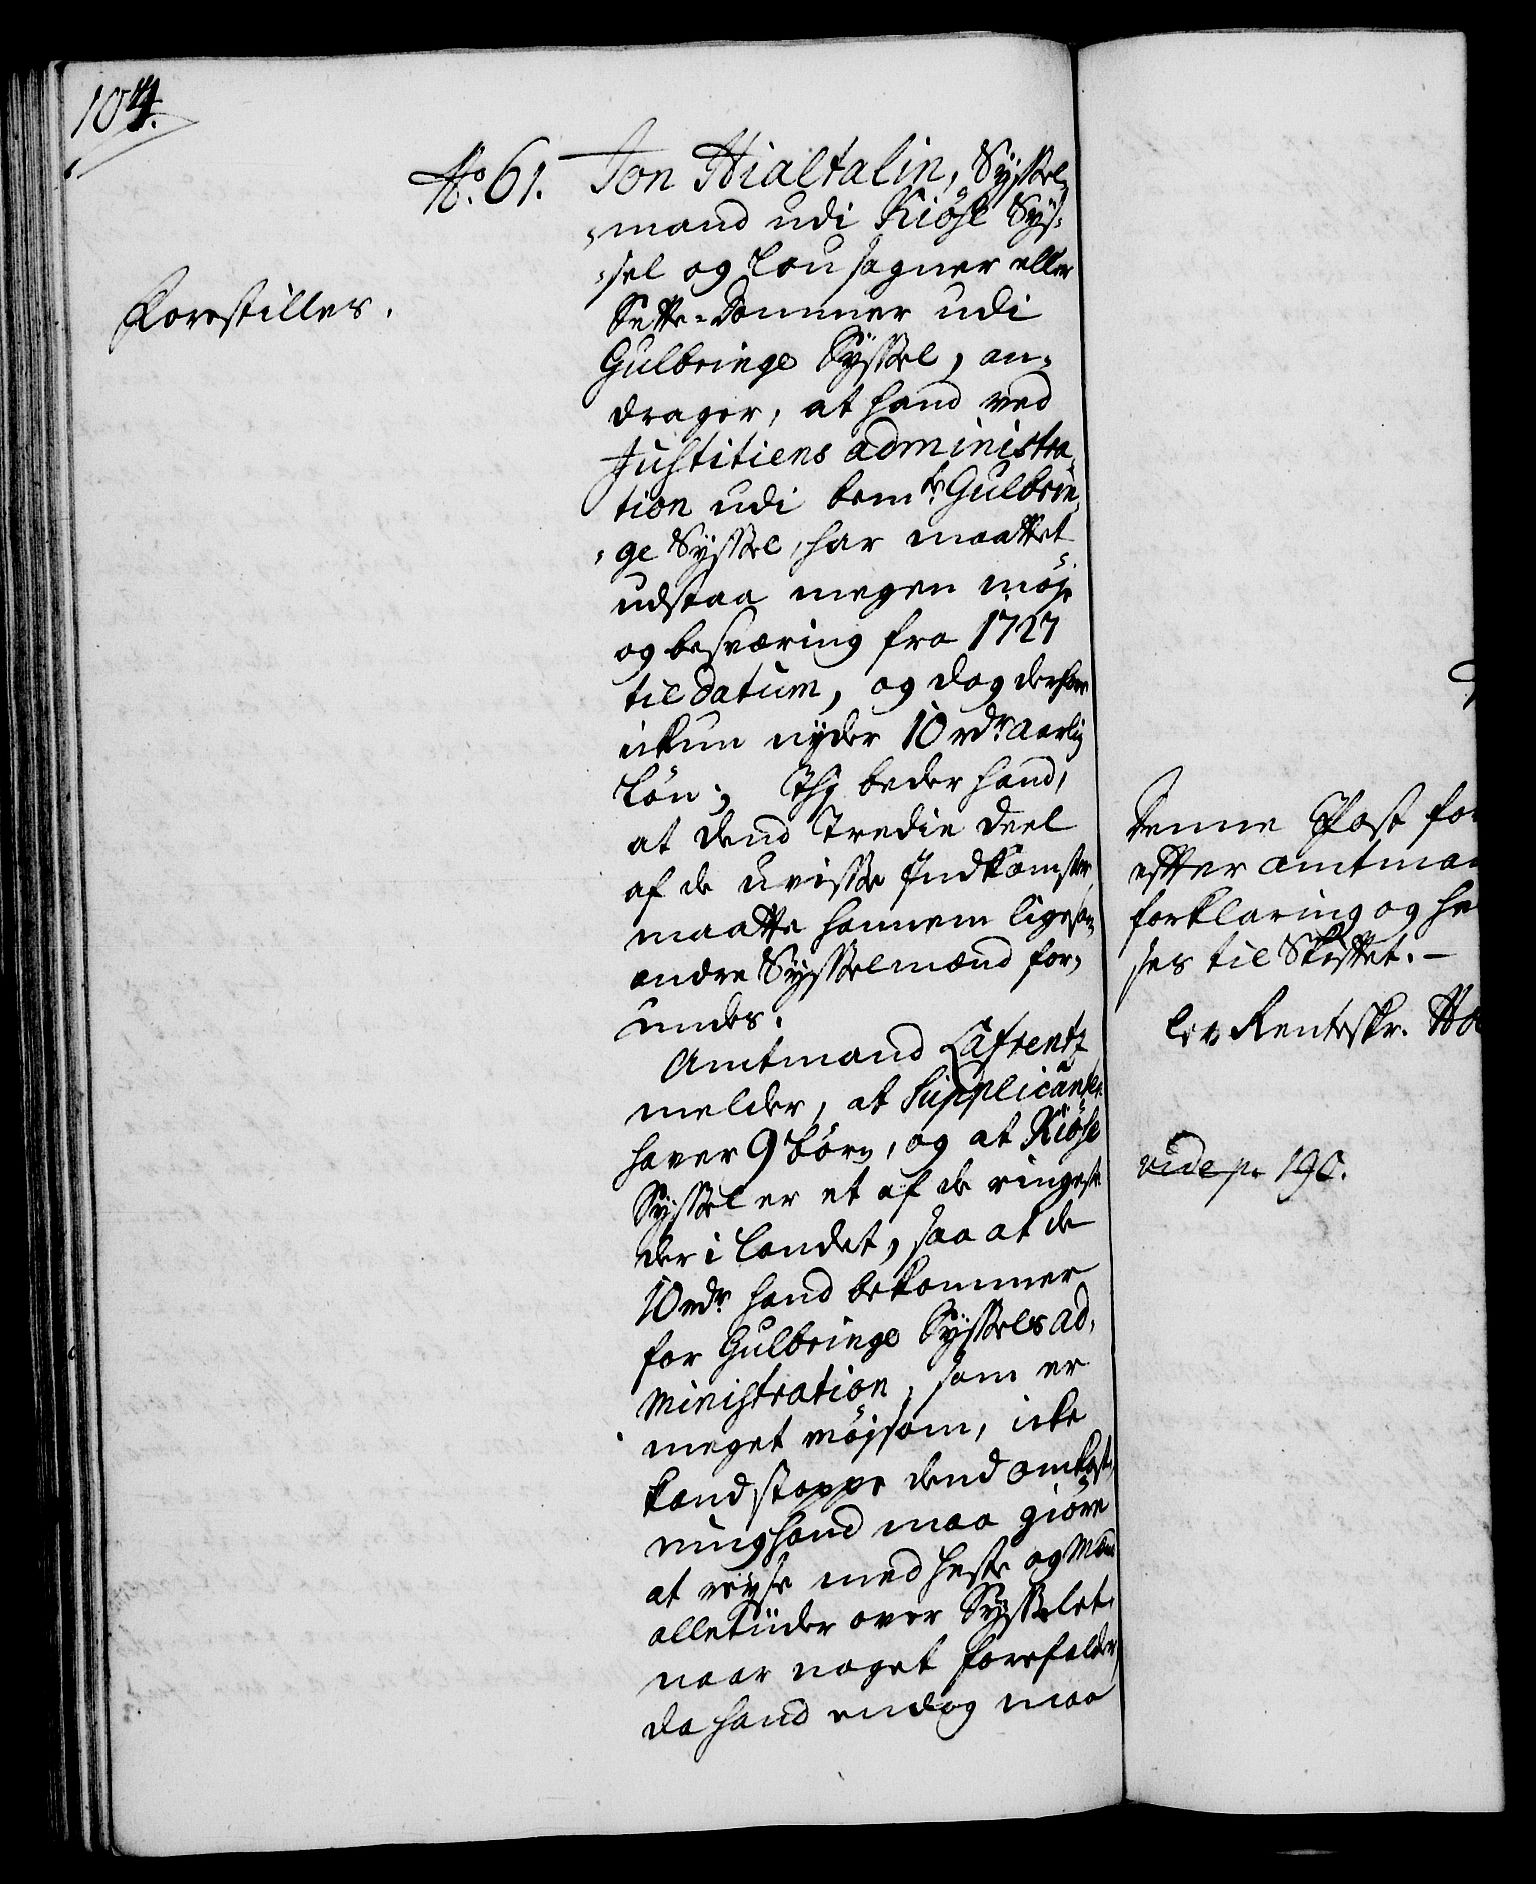 104.
No. 61.
Forestilles.
Jon Hialtalin, Syssel-
mand udi Kiose Sys-
sel og Lousogner eller
Sette-Dommer udi
Gulbringe Syssel, an-
drager, at hand ved
Justitiens administra-
tion udi bemte Gulbrin-
ge Syssel, har maattet
udstaa megen möje
og besværing fra 1727
til datum, og dog derfore
ickun nyder 10 rdr aarlig
Lön; Thj beder hand,
at dend Tredie Deel
af de uvisse Indkomster
maatte hannem ligesom
andre Sysselmænd for-
undes.
Amtmand Lafrentz
melder, at Supplicanten
haver 9 börn, og at Kiöse
Syssel er et af de ringeste
der i Landet, saa at de
10 rdr hand bekommer
for Gulbringe Syssels ad-
ministration, som er
meget möjsom, icke
kand stoppe dend omkost-
ning hand maa giöre
at reyse med heste og Mænd
alletiider over Sysselet,
naar noget forefalder,
da hand endog maa
Denne Post for
effter amtman
forklaring og he
ses til Skifftet. –
lev. Renteskr. Ho
vide p. 190.